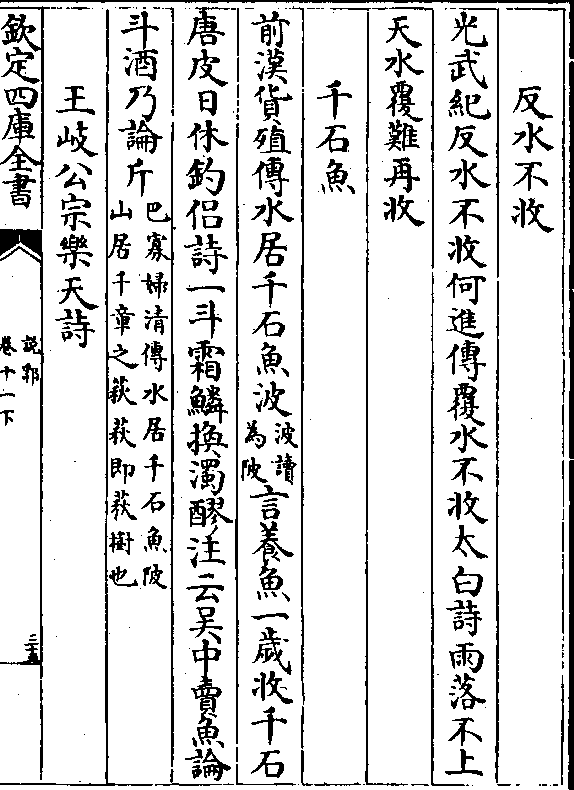 反水不收
光武紀反水不收何進傳覆水不收太白詩雨落不上
天水覆難再收
千石魚
前漢貨殖傳水居千石魚波波讀為陂言養魚一歲收千石
唐皮日休釣侶詩一斗霜鱗換濁醪注云吳中賣魚論
斗酒乃論斤巴寡婦清傳水居千石魚陂山居千章之萩萩即萩樹也
王岐公宗樂天詩
欽定四庫全書
說郛
卷十一下
三十五